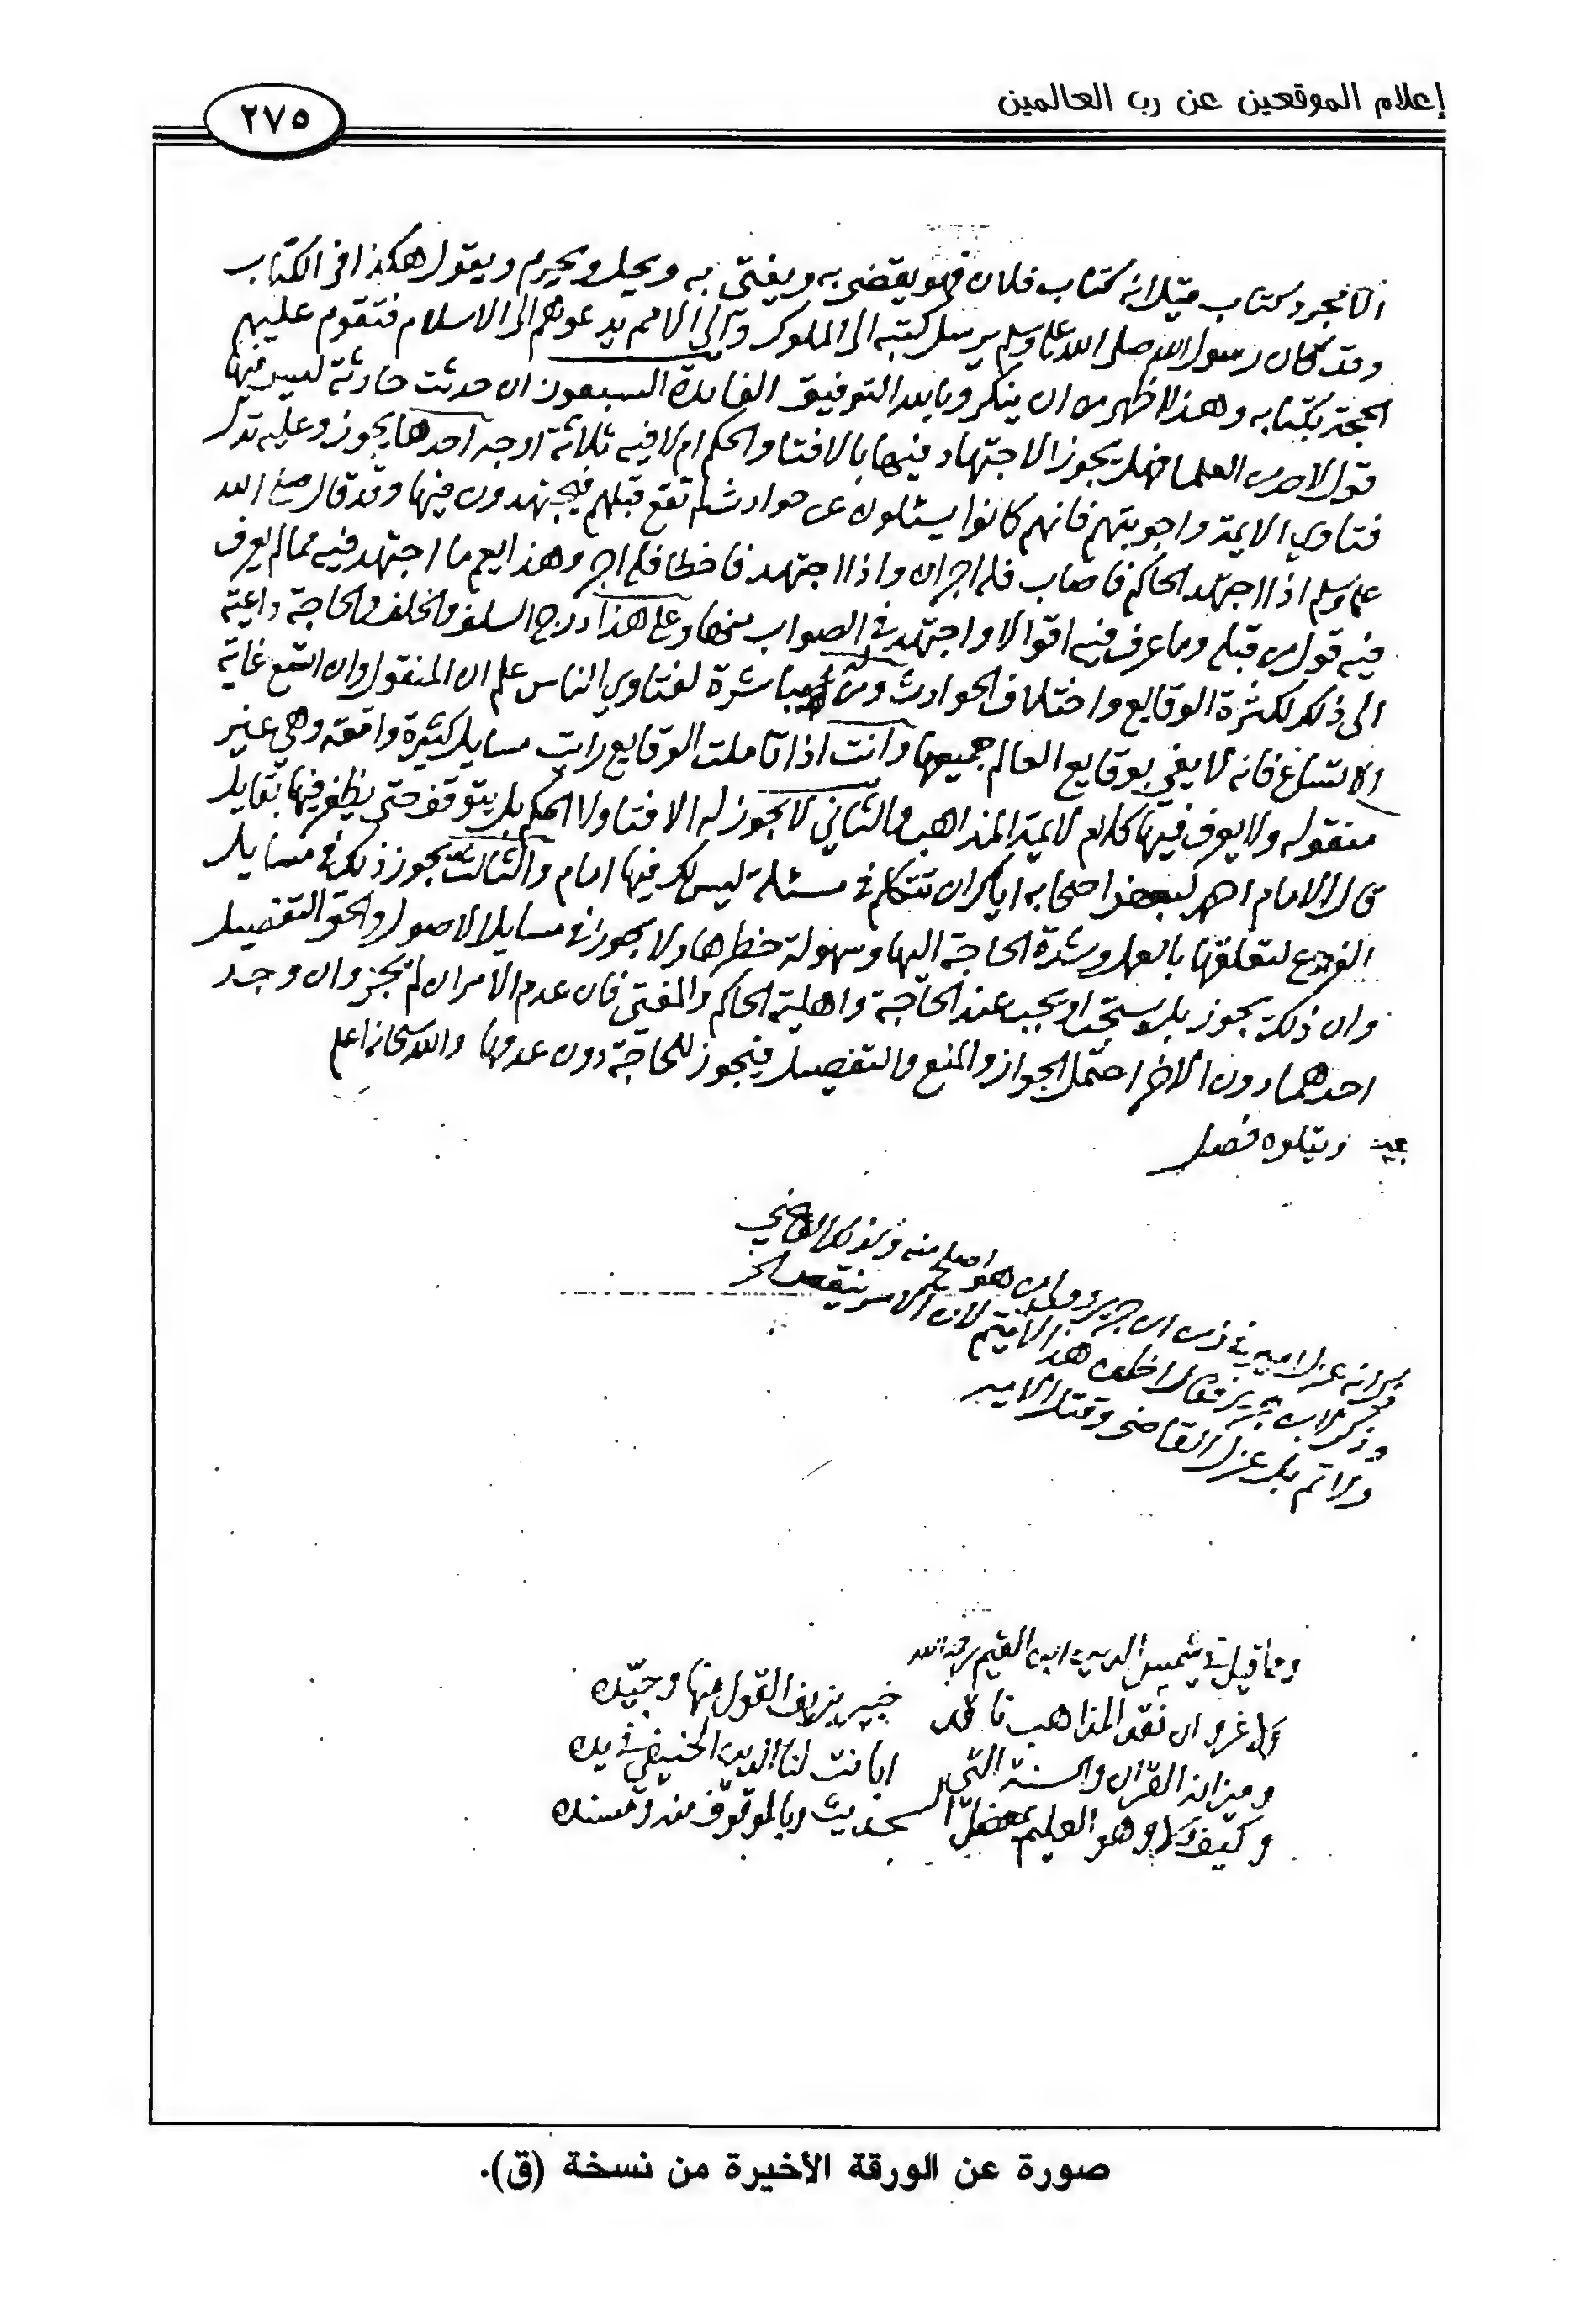 إعلام الموقعين عن رب العالمين
٢٧٥
الا مجرد كتاب قيل انه كتاب فلان فهو يقضي به ويفتي به ويحل ويحرم ويقول هكذا في الكتاب
وقد كان رسول الله صلى الله عليه وسلم يرسل كتبه الى الملوك والي الامم يدعوهم الى الاسلام فتقوم عليهم
الحجة بكتابه وهذا اظهر من ان ينكر وبالله التوفيق الفايدة السبعون ان حدثت حادثة ليس فيها
قول لاحد من العلما فهل يجوز الاجتهاد فيها بالافتا والحكم ام لا فيه ثلاثة اوجه احدها يجوز وعليه تدل
فتاوي الايمة واجوبتهم فانهم كانوا يسئلون عن حوادث لم تقع قبلهم فيجتهدون فيها وقد قال صلى الله
عليه وسلم اذا اجتهد الحاكم فاصاب فله اجران واذا اجتهد فاخطا فله اجر وهذا يعم ما اجتهد فيه مما لم يعرف
فيه قول من قبله وما عرف فيه اقوالا واجتهد في الصواب منها وعلى هذا درج السلف والخلف والحاجة داعية
الى ذلك لكثرة الوقايع واختلاف الحوادث ومن له مباشرة لفتاوي الناس علم ان المنقول وان اتسع غاية
الاتساع فانه لا يفي بوقايع العالم جميعها وانت اذا تاملت الوقايع رايت مسايل كثيرة واقعة وهي غير
منقوله ولا يعرف فيها كلام لايمة المذاهب والثاني لا يجوز له الافتا ولا الحكم بل يتوقف حتى يظفر فيها بقايل
قال الامام احمد لبعض اصحابه اياك ان تتكلم في مسئلة ليس لك فيها امام والثالث يجوز ذلك في مسايل
الفروع لتعلقها بالعمل وشدة الحاجة اليها وسهولة خطرها ولا يجوز في مسايل الاصول والحق التفصيل
وان ذلك يجوز بل يستحب او يجب عند الحاجة واهلية الحاكم والمفتي فان عدم الامران لم يجز وان وجد
احدهما دون الاخر احتمل الجواز والمنع والتفصيل فيجوز للحاجة دون عدمها والله سبحانه اعلم
ويتلوه فصل
هو اصلح منه
هذا لا يتم لان الامر
ولا تم بل عزل القاضي وقتل الامير
ومما قيل في شمس الدين ابن القيم رحمه الله
ولا غرو ان نقد المذاهب ناقد خبير بزيف القول منها وجيده
وميزانه القران والسنة التي ابانت لنا الدين الحنيفي في يده
وكيف ولا وهو العليم بمعضل الحديث وبالموقوف منه ومسنده
صورة عن الورقة الأخيرة من نسخة (ق).